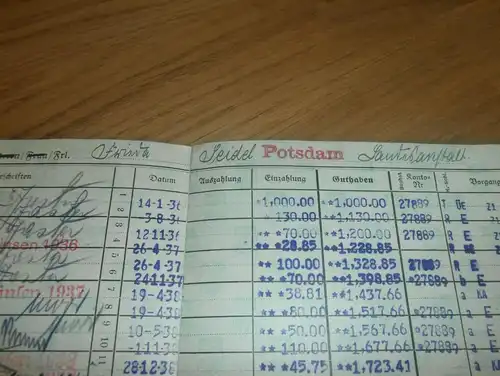 Frau/Frl. Frida Seidel Potsdam
schriften Datum Auszahlung Einzahlung Guthaben Konto-Nr Vorgang
1 14-1-36 *1,000.00 **1,000.00 27889 T
2 3-8-36 **130.00 **1,130.00 27889 R E
3 1211-36 ***70.00 **1,200.00 27889 R E
insen 1936 4 26-4-37 ***28.85 **1,228.85 R
5 26-4-37 **100.00 **1,328.85 27889 R E
6 2411-37 ***70.00 **1,398.85 *27889 b E
insen 1937 7 19-4-38 ***38.81 **1,437.66 a KA
8 19-4-38 ***80.00 **1,517.66 *27889 a E
9 10-5-38 ***50.00 **1,567.66 *27889 a E
10 -111-38 **110.00 **1,677.66 *27889 a E
11 28-12-38 ***45.75 **1,723.41 a